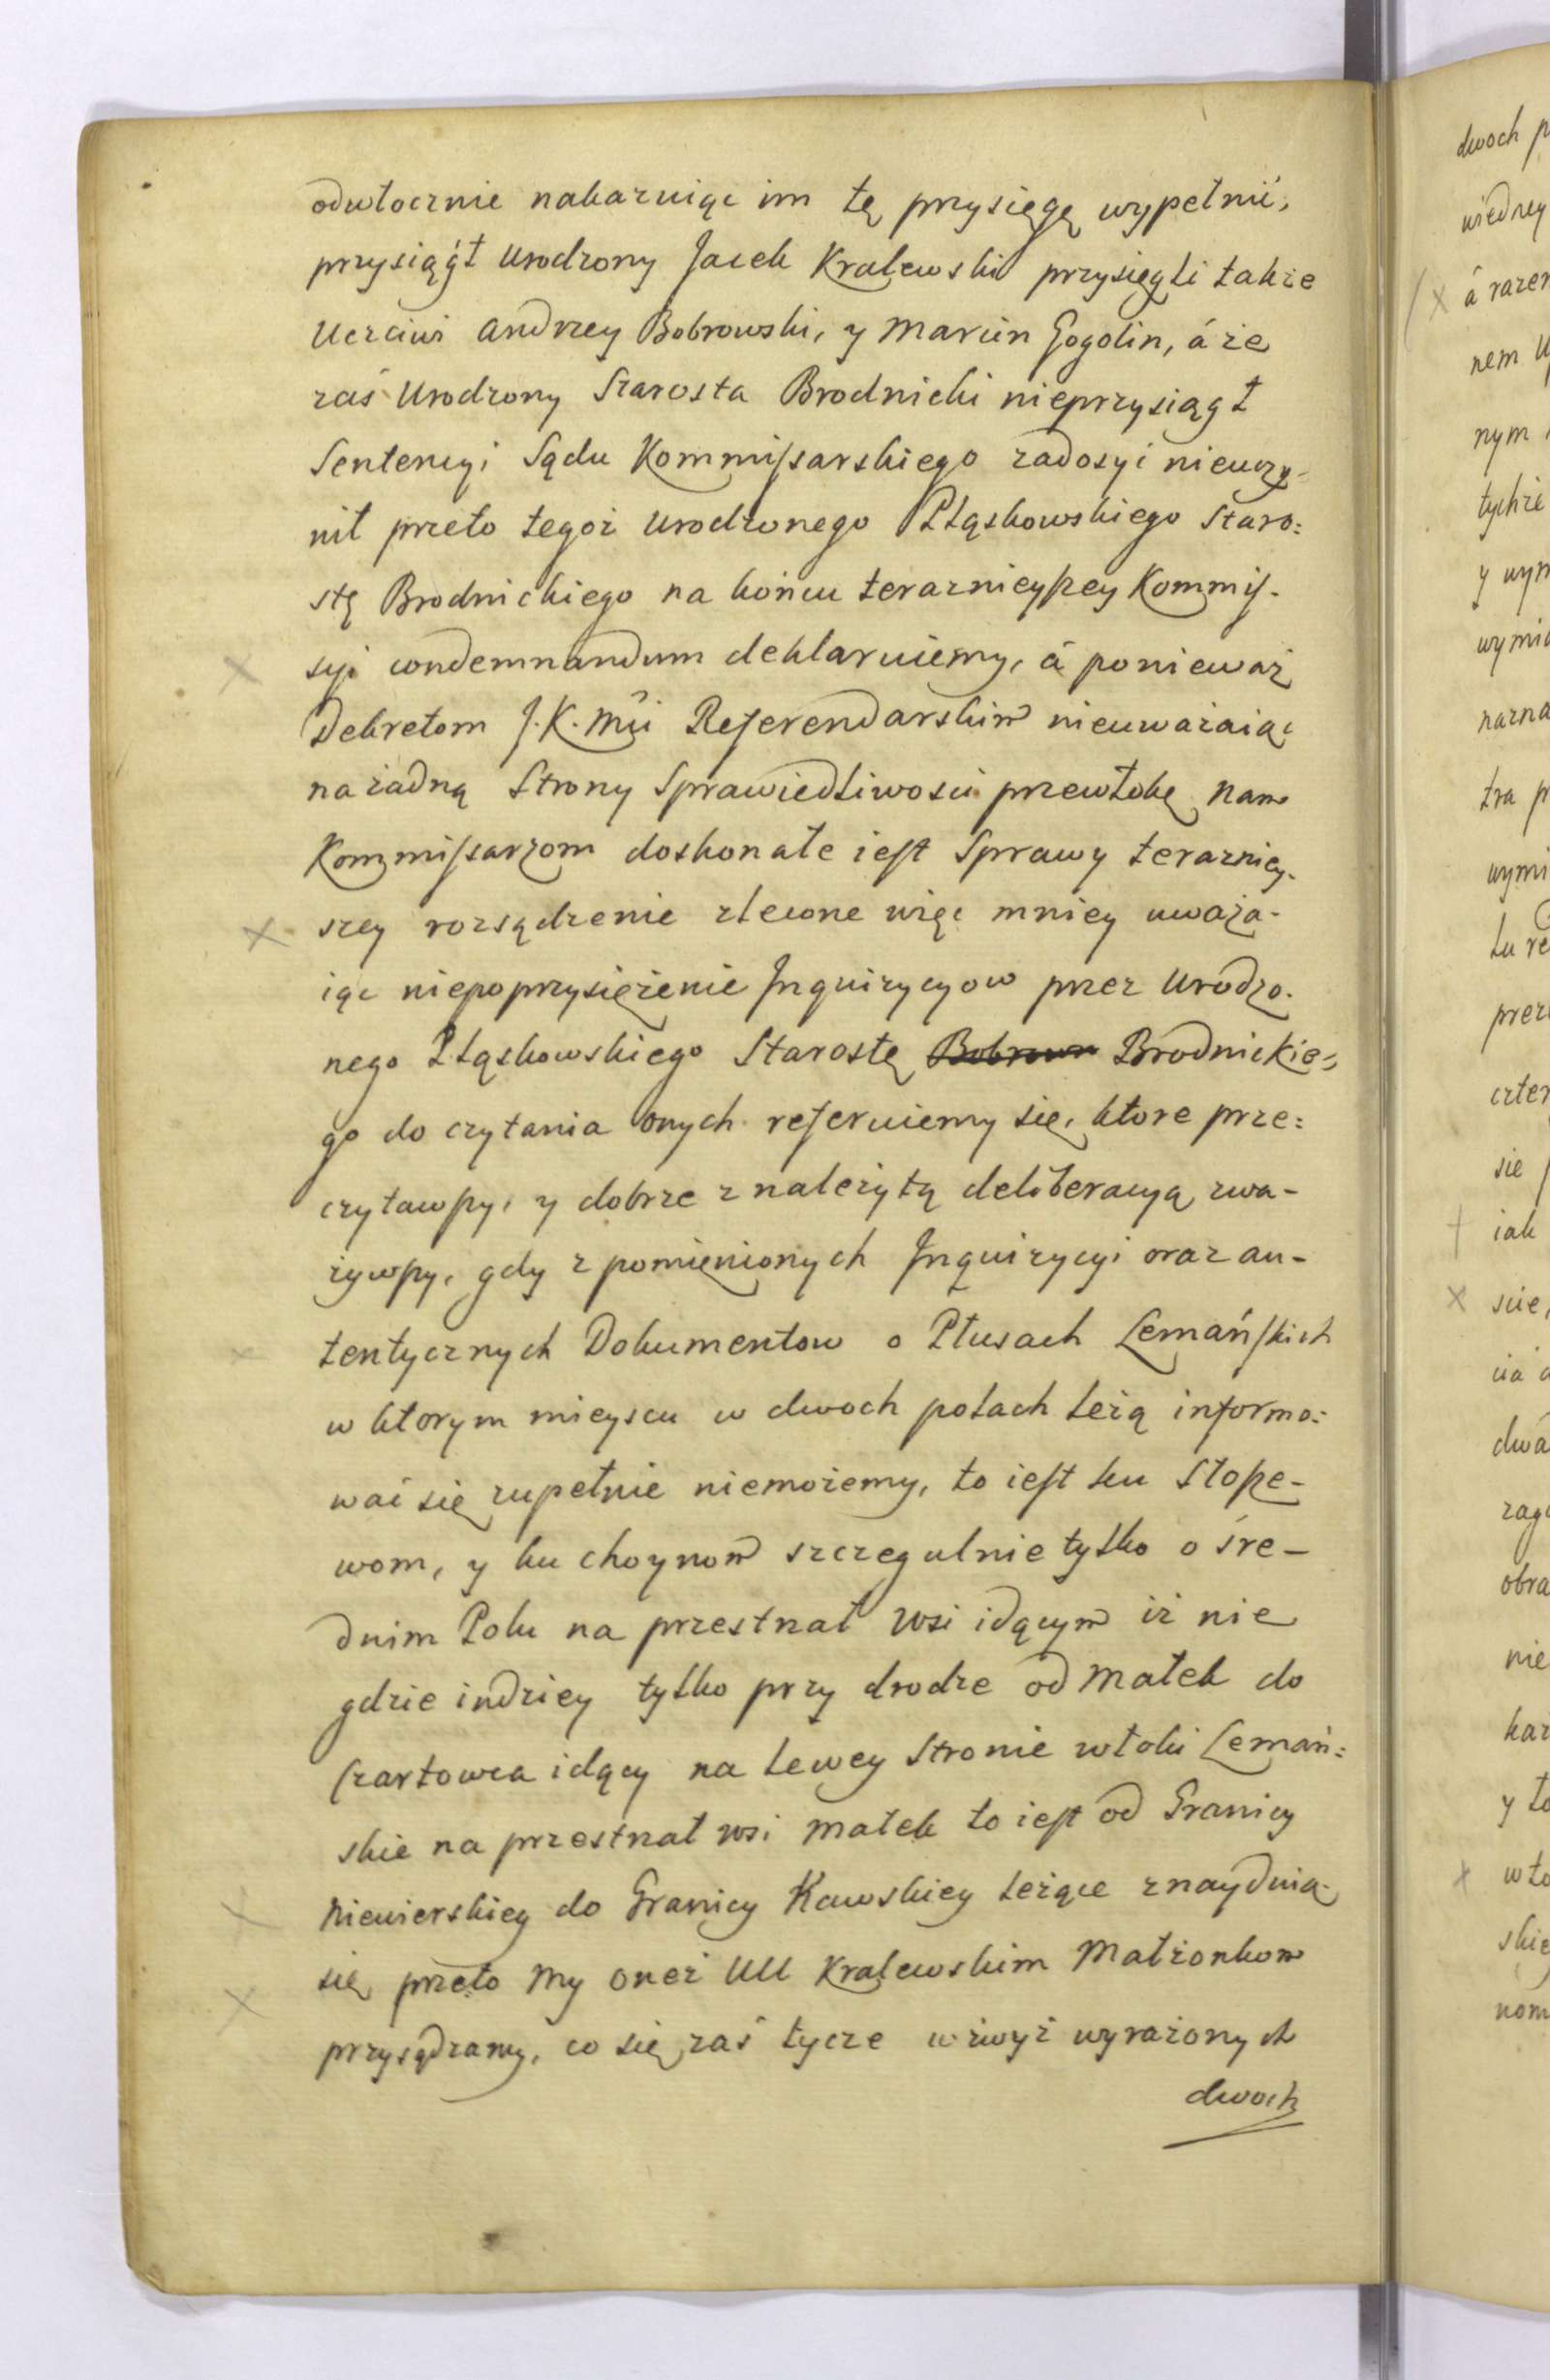 odwłocznie nakazuiąc im tę przysięgę wypełnić,
przysiągł Urodzony Jacek Kralewski przysięgli także
Uczciwi Andrzey Bobrowski, y Marcin Gogolin, á że
zaś Urodzony Starosta Brodnicki nieprzysiągł
Sentencyi Sądu Kommissarskiego zadosyć nieuczy=
nił przeto tegoż Urodzonego Pląskowskiego Staro=
stę Brodnickiego na końcu teraznieyszey Kommis-
syi condemnandum deklaruiemy, á ponieważ
Dekretom J.K.Mći Referendarskim nieuważaiąc
na żadną Strony Sprawiedliwości przewłokę nam
Kommissarzom doskonałe iest Sprawy terazniey-
szey rozsądzenie zlecone więc mniey uważa-
iąc niepoprzysiężenie Inquizycyow przez Urodzo-
nego Pląskowskiego Starostę Bobrown Brodnickie=
go do czytania onych referuiemy się, ktore prze=
czytawszy, y dobrze z należytą deliberacyą zwa-
żywszy, gdy z pomienionych Inquizycyi oraz au-
tentycznych Dokumentow o Płusach Lemańskich
w ktorym mieyscu w dwoch polach leżą informo=
wać się zupełnie niemożemy, to iest ku Słosze-
wom, y ku choynom szczegulnie tylko o śre-
dnim Polu na przestrzał wsi idącym iż nie
gdzie indziey tylko przy drodze od Małek do
Czartowca idący na lewey Stronie włoki Lemań=
skie na przestrzał wsi Małek to iest od Granicy
Niewierskiey do Granicy Kawskiey leżące znayduią
się przeto My oneż UU Kralewskim Małżonkom
przysądzamy, co się zaś tycze wżwyż wyrażonych
dwoch
dwoch p
wiedney
á razem
nem U
nym
tychże
y wym
wymia
nazna
tra p
wymi
lu re
prze
czter
sie p
iak
scie,
cia
dwa
zag
obra
nie
kaz
y to
wło
skie
nom